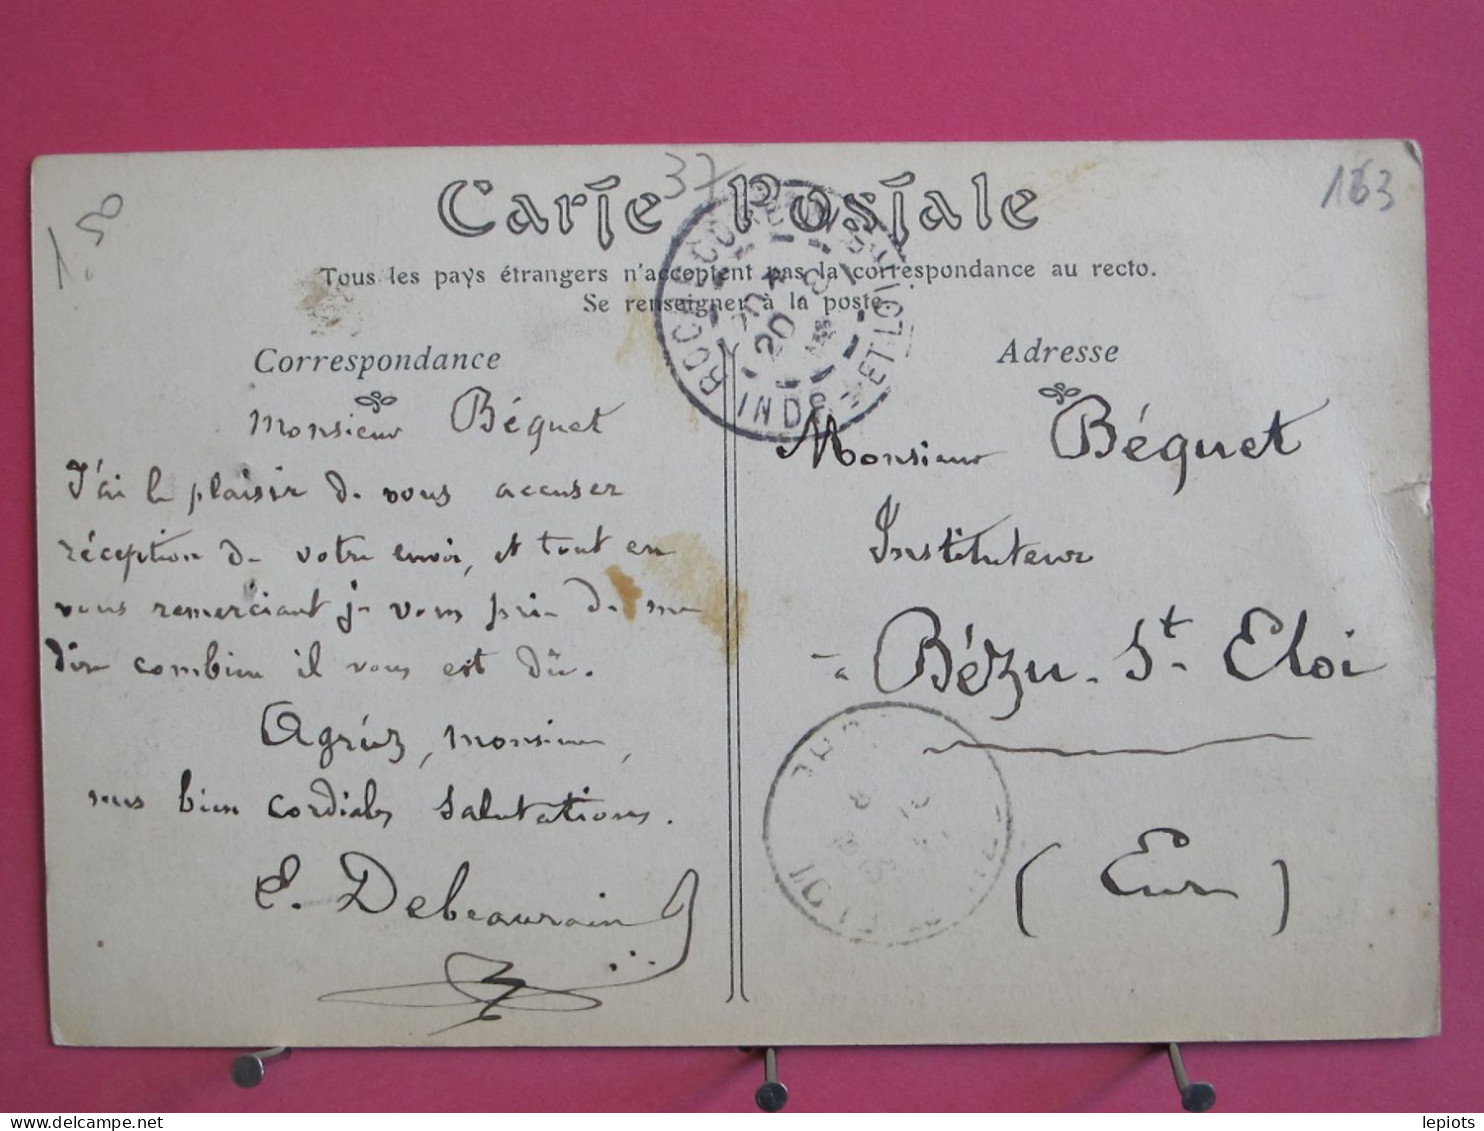 37
163
1.50
Carte Postale
Tous les pays étrangers n'acceptent pas la correspondance au recto.
Se renseigner à la poste.
Correspondance
Monsieur Béquet
J'ai le plaisir de vous accuser
réception de votre envoi, et tout en
vous remerciant je vous prie de me
dire combien il vous est dû.
Agréez, monsieur,
mes bien cordiales salutations.
E. Debeaurain
Adresse
Monsieur Béquet
Instituteur
à Bézu-St-Eloi
(Eure)
INDRE-ET-LOIRE
20
lepiots
delcampe.net